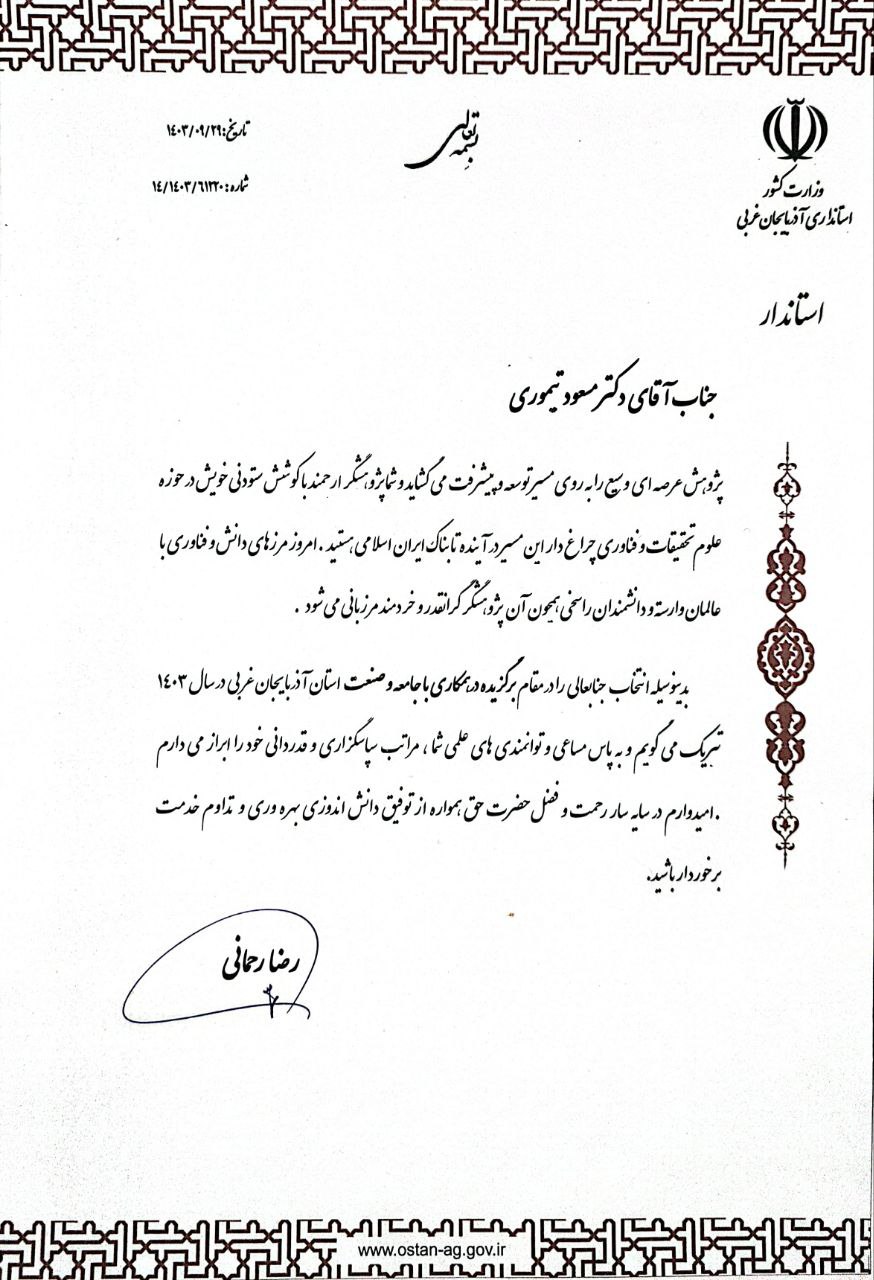 بسمه تعالی
تاریخ: ۱۴۰۳/۰۹/۲۹
شماره: ۱۴/۱۴۰۳/۶۱۲۲۰
وزارت کشور
استانداری آذربایجان غربی
استاندار
جناب آقای دکتر مسعود تیموری
پژوهش عرصه ای وسیع را به روی مسیر توسعه و پیشرفت می گشاید و شما پژوهشگر ارجمند با کوشش ستودنی خویش در حوزه
علوم تحقیقات و فناوری چراغ دار این مسیر در آینده تابناک ایران اسلامی هستید . امروز مرزهای دانش و فناوری با
عالمان وارسته و دانشمندان راسخی همچون آن پژوهشگر گرانقدر و خردمند مرزبانی می شود .
بدینوسیله انتخاب جنابعالی را در مقام برگزیده در همکاری با جامعه و صنعت استان آذربایجان غربی در سال ۱۴۰۳
تبریک می گویم و به پاس مساعی و توانمندی های علمی شما ، مراتب سپاسگزاری و قدردانی خود را ابراز می دارم
. امیدوارم در سایه سار رحمت و فضل حضرت حق همواره از توفیق دانش اندوزی بهره وری و تداوم خدمت
برخوردار باشید.
رضا رحمانی
www.ostan-ag.gov.ir